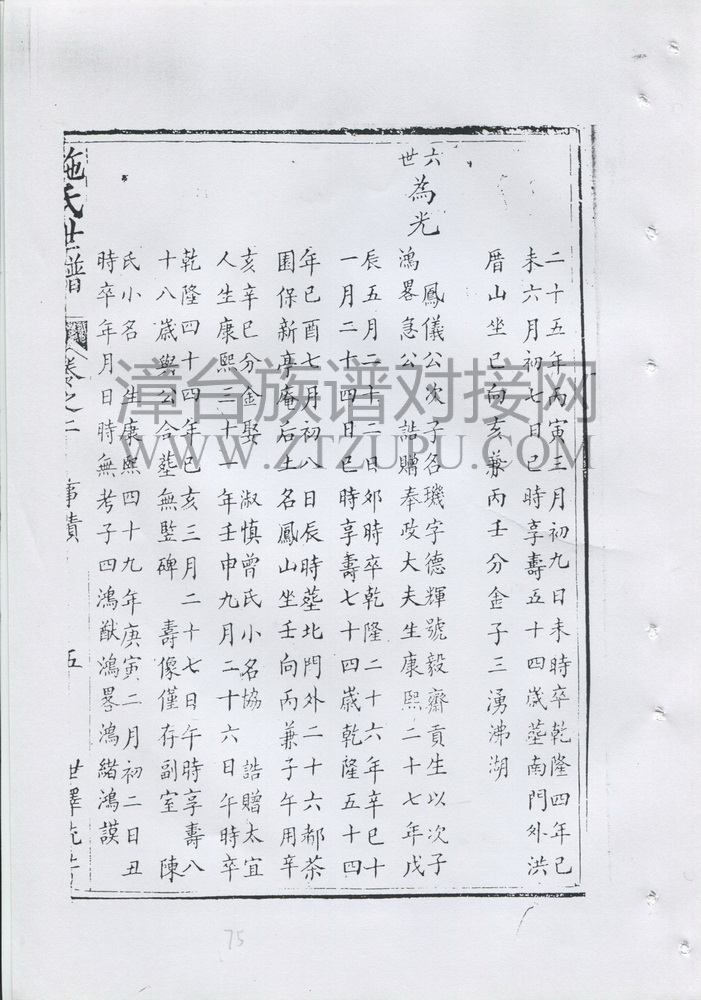 二十五年丙寅三月初九日未時卒乾隆四年己
未六月初七日巳時享壽五十四歲塟南門外洪
厝山坐巳向亥兼丙壬分金子三湧沸湖
六世
為光
鳳儀公次子名璣字德輝號毅齋貢生以次子
鴻畧急公 誥贈奉政大夫生康熙二十七年戊
辰五月二十二日夘時卒乾隆二十六年辛巳十
一月二十四日巳時享壽七十四歲乾隆五十四
年己酉七月初八日辰時塟北門外二十六都茶
園保新亭庵后土名鳳山坐壬向丙兼子午用辛
亥辛巳分金娶 淑慎曾氏小名協 誥贈太宜
人生康熙三十一年壬申九月二十六日午時卒
乾隆四十四年己亥三月二十七日午時享壽八
十八歲與公合塟無竪碑 壽像僅存副室 陳
氏小名 生康熙四十九年庚寅二月初二日丑
時卒年月日時無考子四鴻猷鴻畧鴻緒鴻謨
施氏世譜
卷之二 事蹟
五
世澤
漳台族谱对接网
WWW.ZTZUPU.COM
75